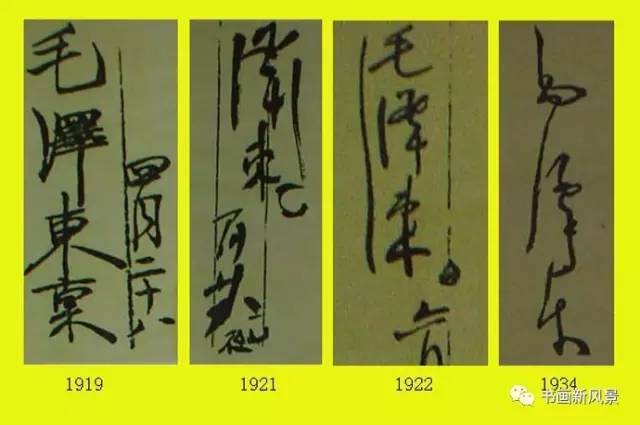 毛澤東稟
四月二十八
澤東
毛澤東
六月
毛澤东
1919
1921
1922
1934
书画新风景